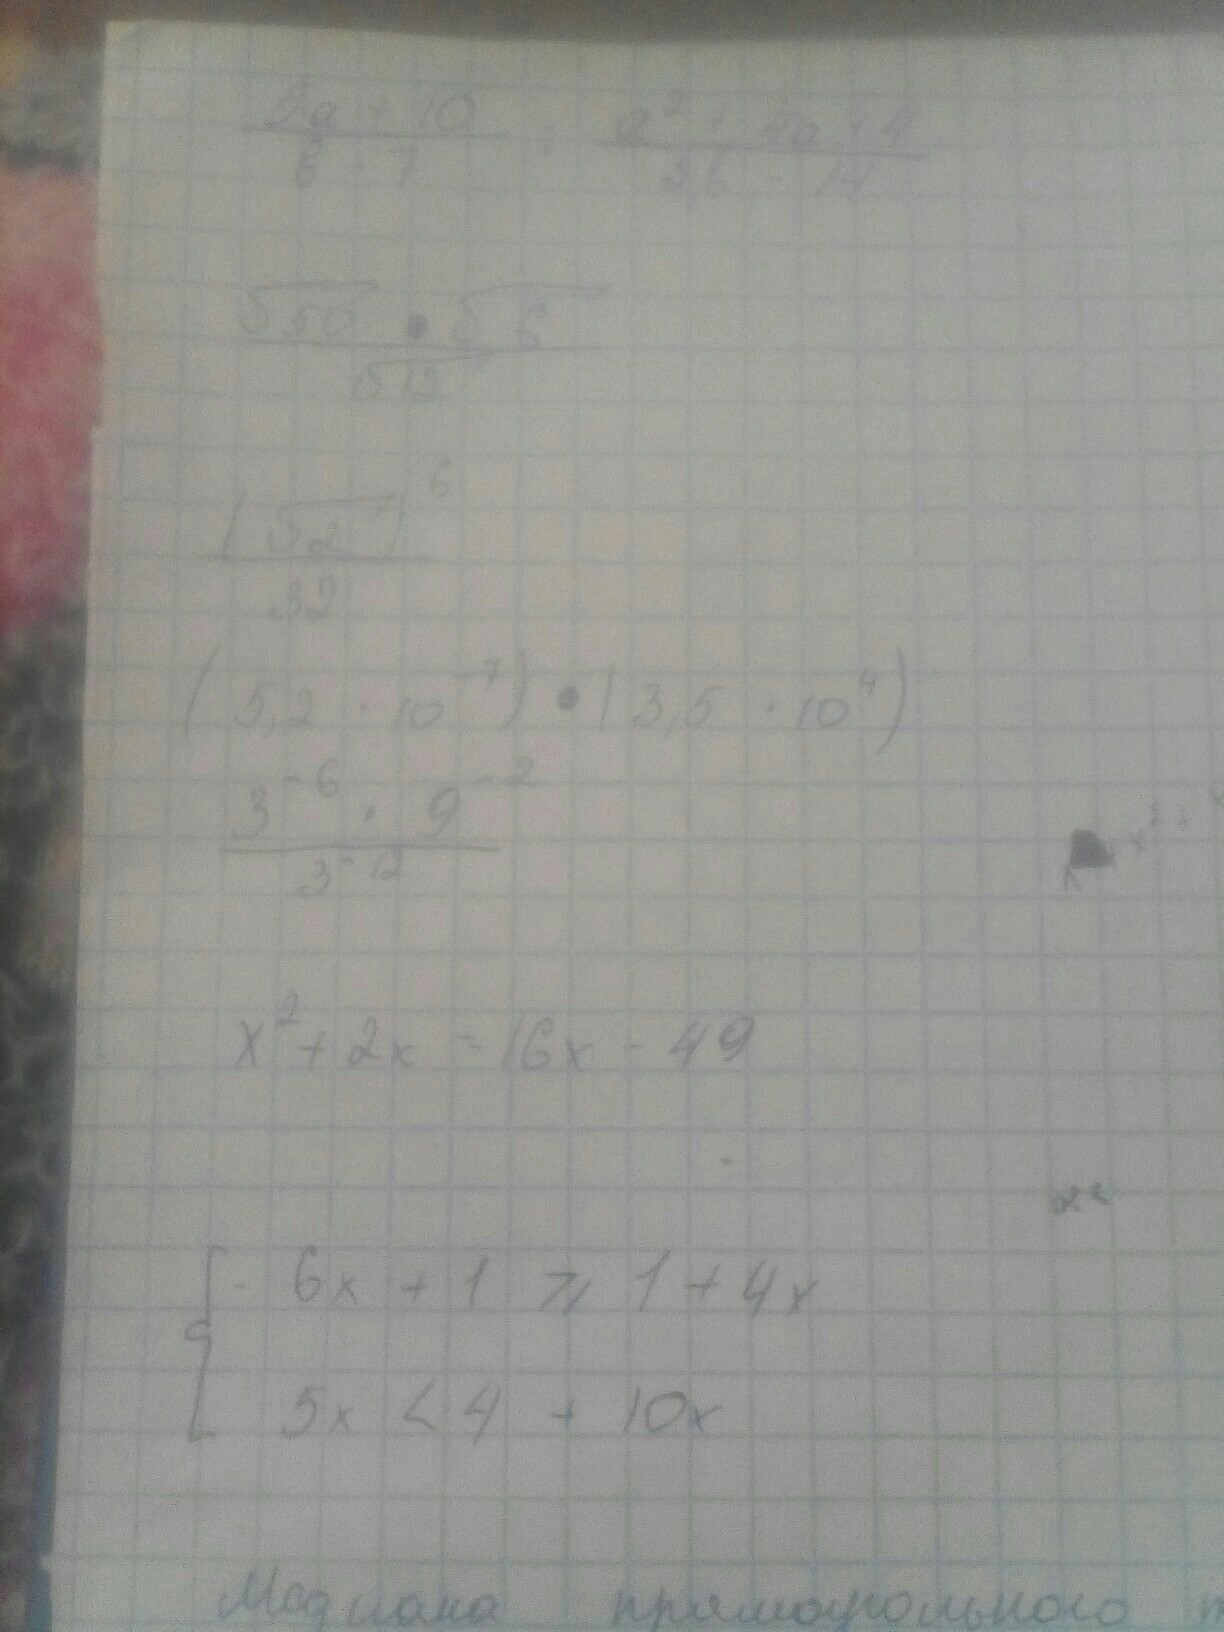 5a + 10 / b - 7 : a² + 4a + 4 / 2b - 14
√50 • √6 / √12
(√2)⁶ / 32
(5,2 · 10⁻⁷) • (3,5 · 10⁴)
3⁻⁶ · 9⁻² / 3⁻¹²
x² + 2x = 16x - 49
{ - 6x + 1 ⩾ 1 + 4x
5x < 4 + 10x
Медиана прямоугольного